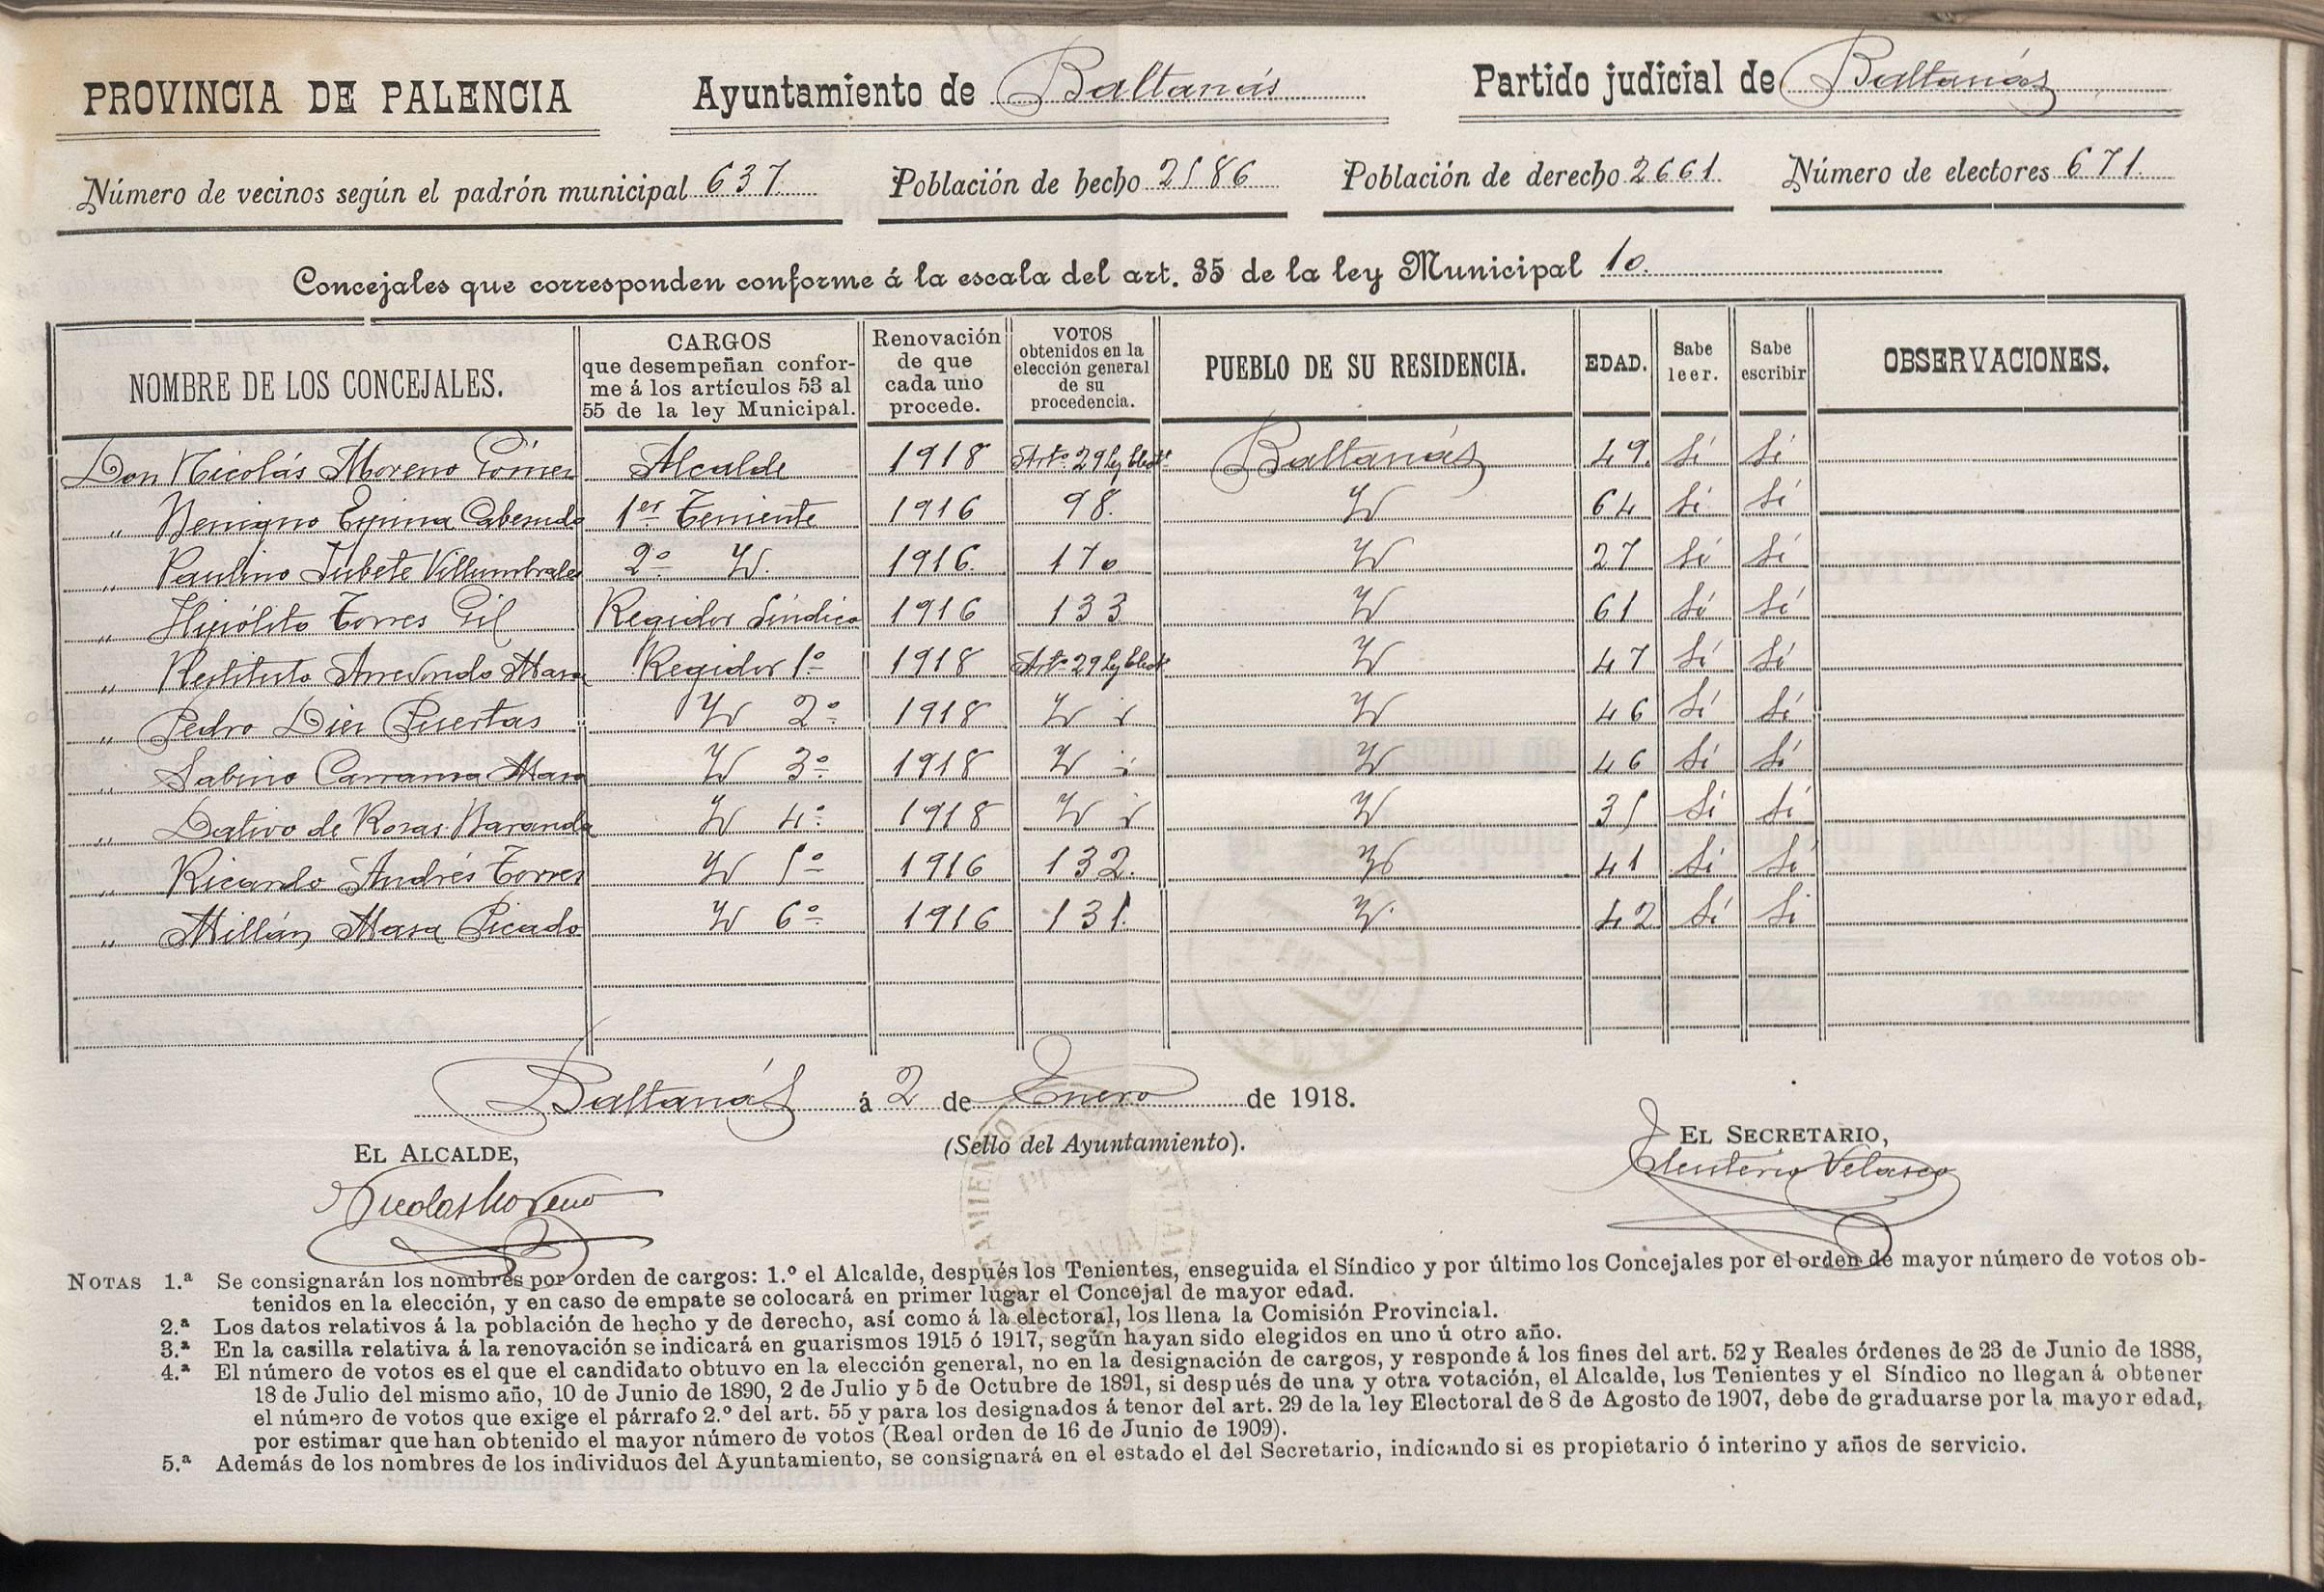 PROVINCIA DE PALENCIA Ayuntamiento de Baltanás Partido judicial de Baltanás
Número de vecinos según el padrón municipal 637 Población de hecho 2586 Población de derecho 2661. Número de electores 671.
Concejales que corresponden conforme á la escala del art. 35 de la ley Municipal 10.
NOMBRE DE LOS CONCEJALES.
CARGOS
que desempeñan confor-
me á los artículos 53 al
55 de la ley Municipal.
Renovación
de que
cada uno
procede.
VOTOS
obtenidos en la
elección general
de su
procedencia.
PUEBLO DE SU RESIDENCIA.
EDAD.
Sabe
leer.
Sabe
escribir
OBSERVACIONES.
Don Nicolás Moreno Gómez Alcalde 1918 Artº 29 ley Elect. Baltanás 49. Sí Sí
„ Benigno Espina Cabezudo 1er Teniente 1916 98. Yd 64 Sí Sí
„ Paulino Jubete Villumbrales 2º Yd. 1916. 170 Yd 27 Sí Sí
„ Hipólito Torres Gil Regidor Síndico 1916 133 Yd 61 Sí Sí
„ Restituto Arredondo Masa Regidor 1º 1918 Artº 29 ley Elect. Yd 47 Sí Sí
„ Pedro Diez Puertas Yd 2º 1918 Yd Yd 46 Sí Sí
„ Sabino Carranza Masa Yd 3º 1918 Yd Yd 46 Sí Sí
„ Dativo de Rozas Baranda Yd 4º 1918 Yd Yd 35 Sí Sí
„ Ricardo Andrés Torres Yd 5º 1916 132. Yd 41 Sí Sí
„ Millán Masa Picado Yd 6º 1916 131. Yd. 42 Sí Sí
Baltanás á 2 de Enero de 1918.
EL ALCALDE, (Sello del Ayuntamiento). EL SECRETARIO,
Nicolas Moreno Eleuterio Velasco
NOTAS 1.ª Se consignarán los nombres por orden de cargos: 1.º el Alcalde, después los Tenientes, enseguida el Síndico y por último los Concejales por el orden de mayor número de votos ob-
tenidos en la elección, y en caso de empate se colocará en primer lugar el Concejal de mayor edad.
2.ª Los datos relativos á la población de hecho y de derecho, así como á la electoral, los llena la Comisión Provincial.
3.ª En la casilla relativa á la renovación se indicará en guarismos 1915 ó 1917, según hayan sido elegidos en uno ú otro año.
4.ª El número de votos es el que el candidato obtuvo en la elección general, no en la designación de cargos, y responde á los fines del art. 52 y Reales órdenes de 23 de Junio de 1888,
18 de Julio del mismo año, 10 de Junio de 1890, 2 de Julio y 5 de Octubre de 1891, si después de una y otra votación, el Alcalde, los Tenientes y el Síndico no llegan á obtener
el número de votos que exige el párrafo 2.º del art. 55 y para los designados á tenor del art. 29 de la ley Electoral de 8 de Agosto de 1907, debe de graduarse por la mayor edad,
por estimar que han obtenido el mayor número de votos (Real orden de 16 de Junio de 1909).
5.ª Además de los nombres de los individuos del Ayuntamiento, se consignará en el estado el del Secretario, indicando si es propietario ó interino y años de servicio.